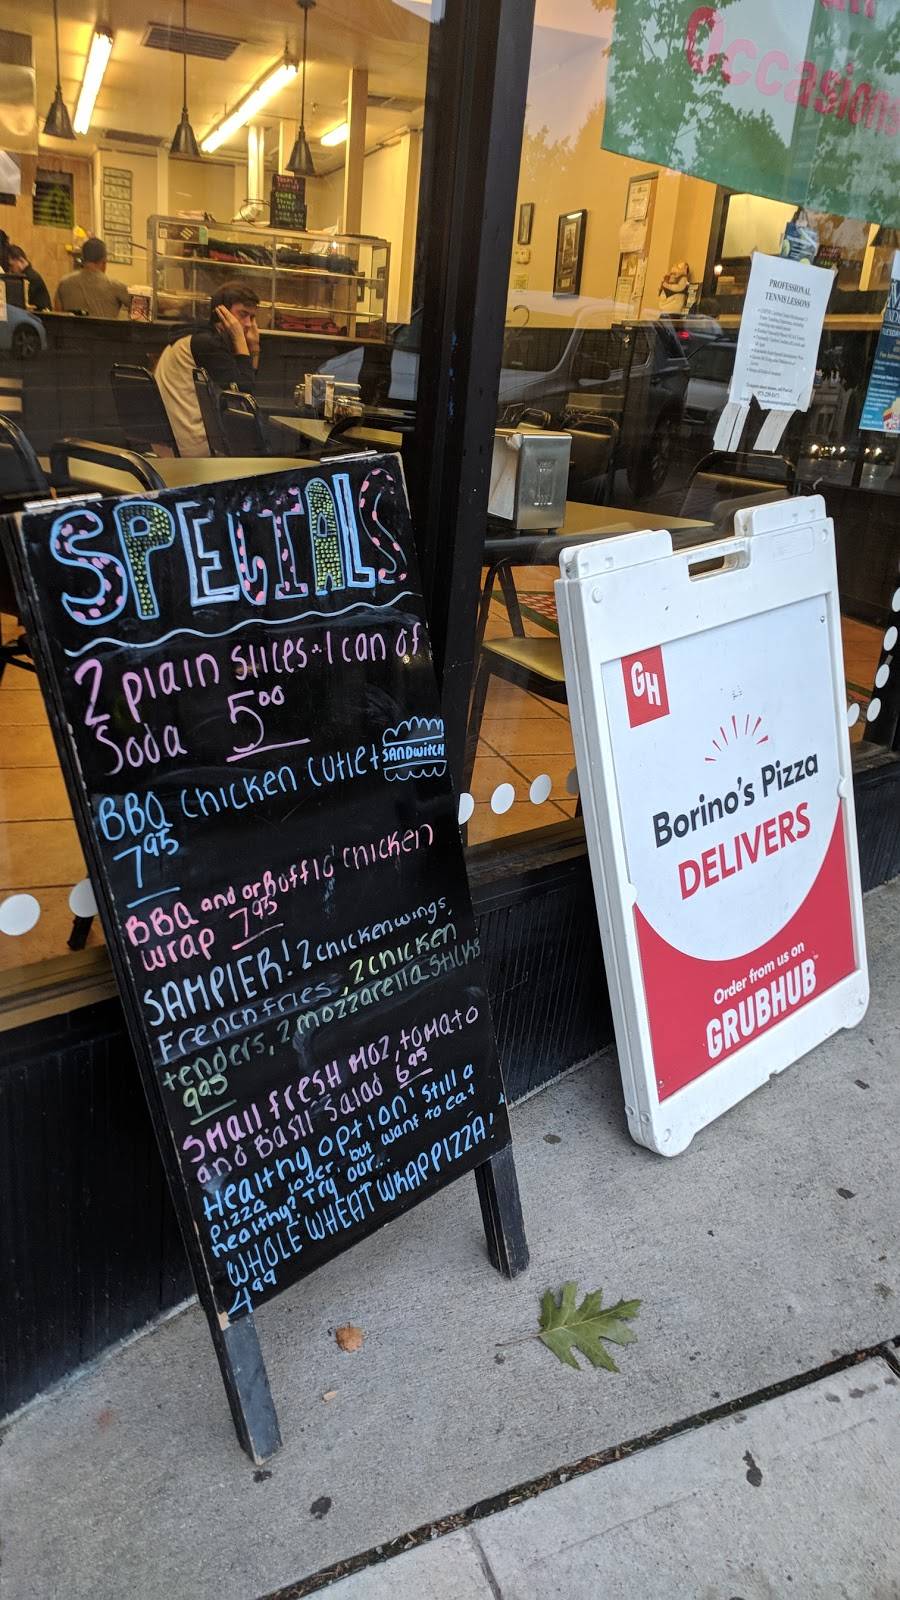 SPECIALS
2 plain slices + 1 can of
Soda 5.00
BBQ chicken cutlet SANDWITCH
7.95
BBQ and or Bufflo chicken
wrap 7.95
SAMPLER! 2 chicken wings,
French fries, 2 chicken
tenders, 2 mozzarella sticks
9.95
Small fresh moz, tomato
and Basil Salad 6.95
Healthy option! Still a
pizza loder, but want to eat
healthy? Try our...
WHOLE WHEAT WRAP PIZZA!
4.99
GH
Borino's Pizza
DELIVERS
Order from us on
GRUBHUB
Occasions
PROFESSIONAL
TENNIS LESSONS